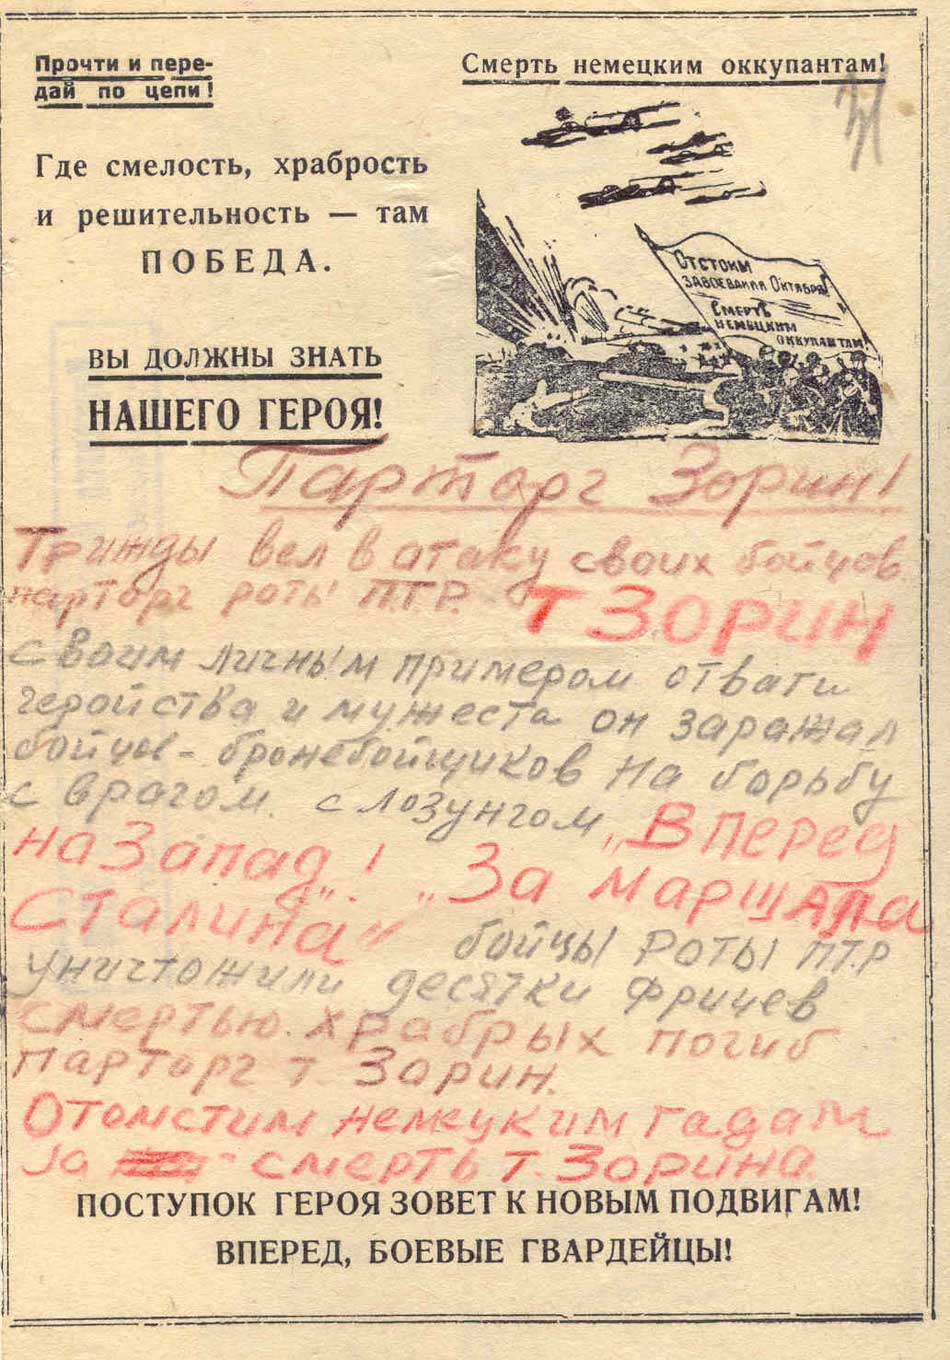 Прочти и пере-
дай по цепи!
Смерть немецким оккупантам!
Где смелость, храбрость
и решительность — там
ПОБЕДА.
Отстоим
завоевания Октября!
Смерть
немецким
оккупантам!
ВЫ ДОЛЖНЫ ЗНАТЬ
НАШЕГО ГЕРОЯ!
Парторг Зорин!
Трижды вел в атаку своих бойцов
парторг роты П.Т.Р. т ЗОРИН
своим личным примером отваги
геройства и мужеста он заражал
бойцов - бронебойщиков на борьбу
с врагом. с лозунгом „Вперед
на Запад"! „За маршала
Сталина" бойцы роты ПТ.Р
уничтожили десятки фрицев
смертью храбрых погиб
парторг т. Зорин.
Отомстим немецким гадам
за смерть т. Зорина.
ПОСТУПОК ГЕРОЯ ЗОВЕТ К НОВЫМ ПОДВИГАМ!
ВПЕРЕД, БОЕВЫЕ ГВАРДЕЙЦЫ!